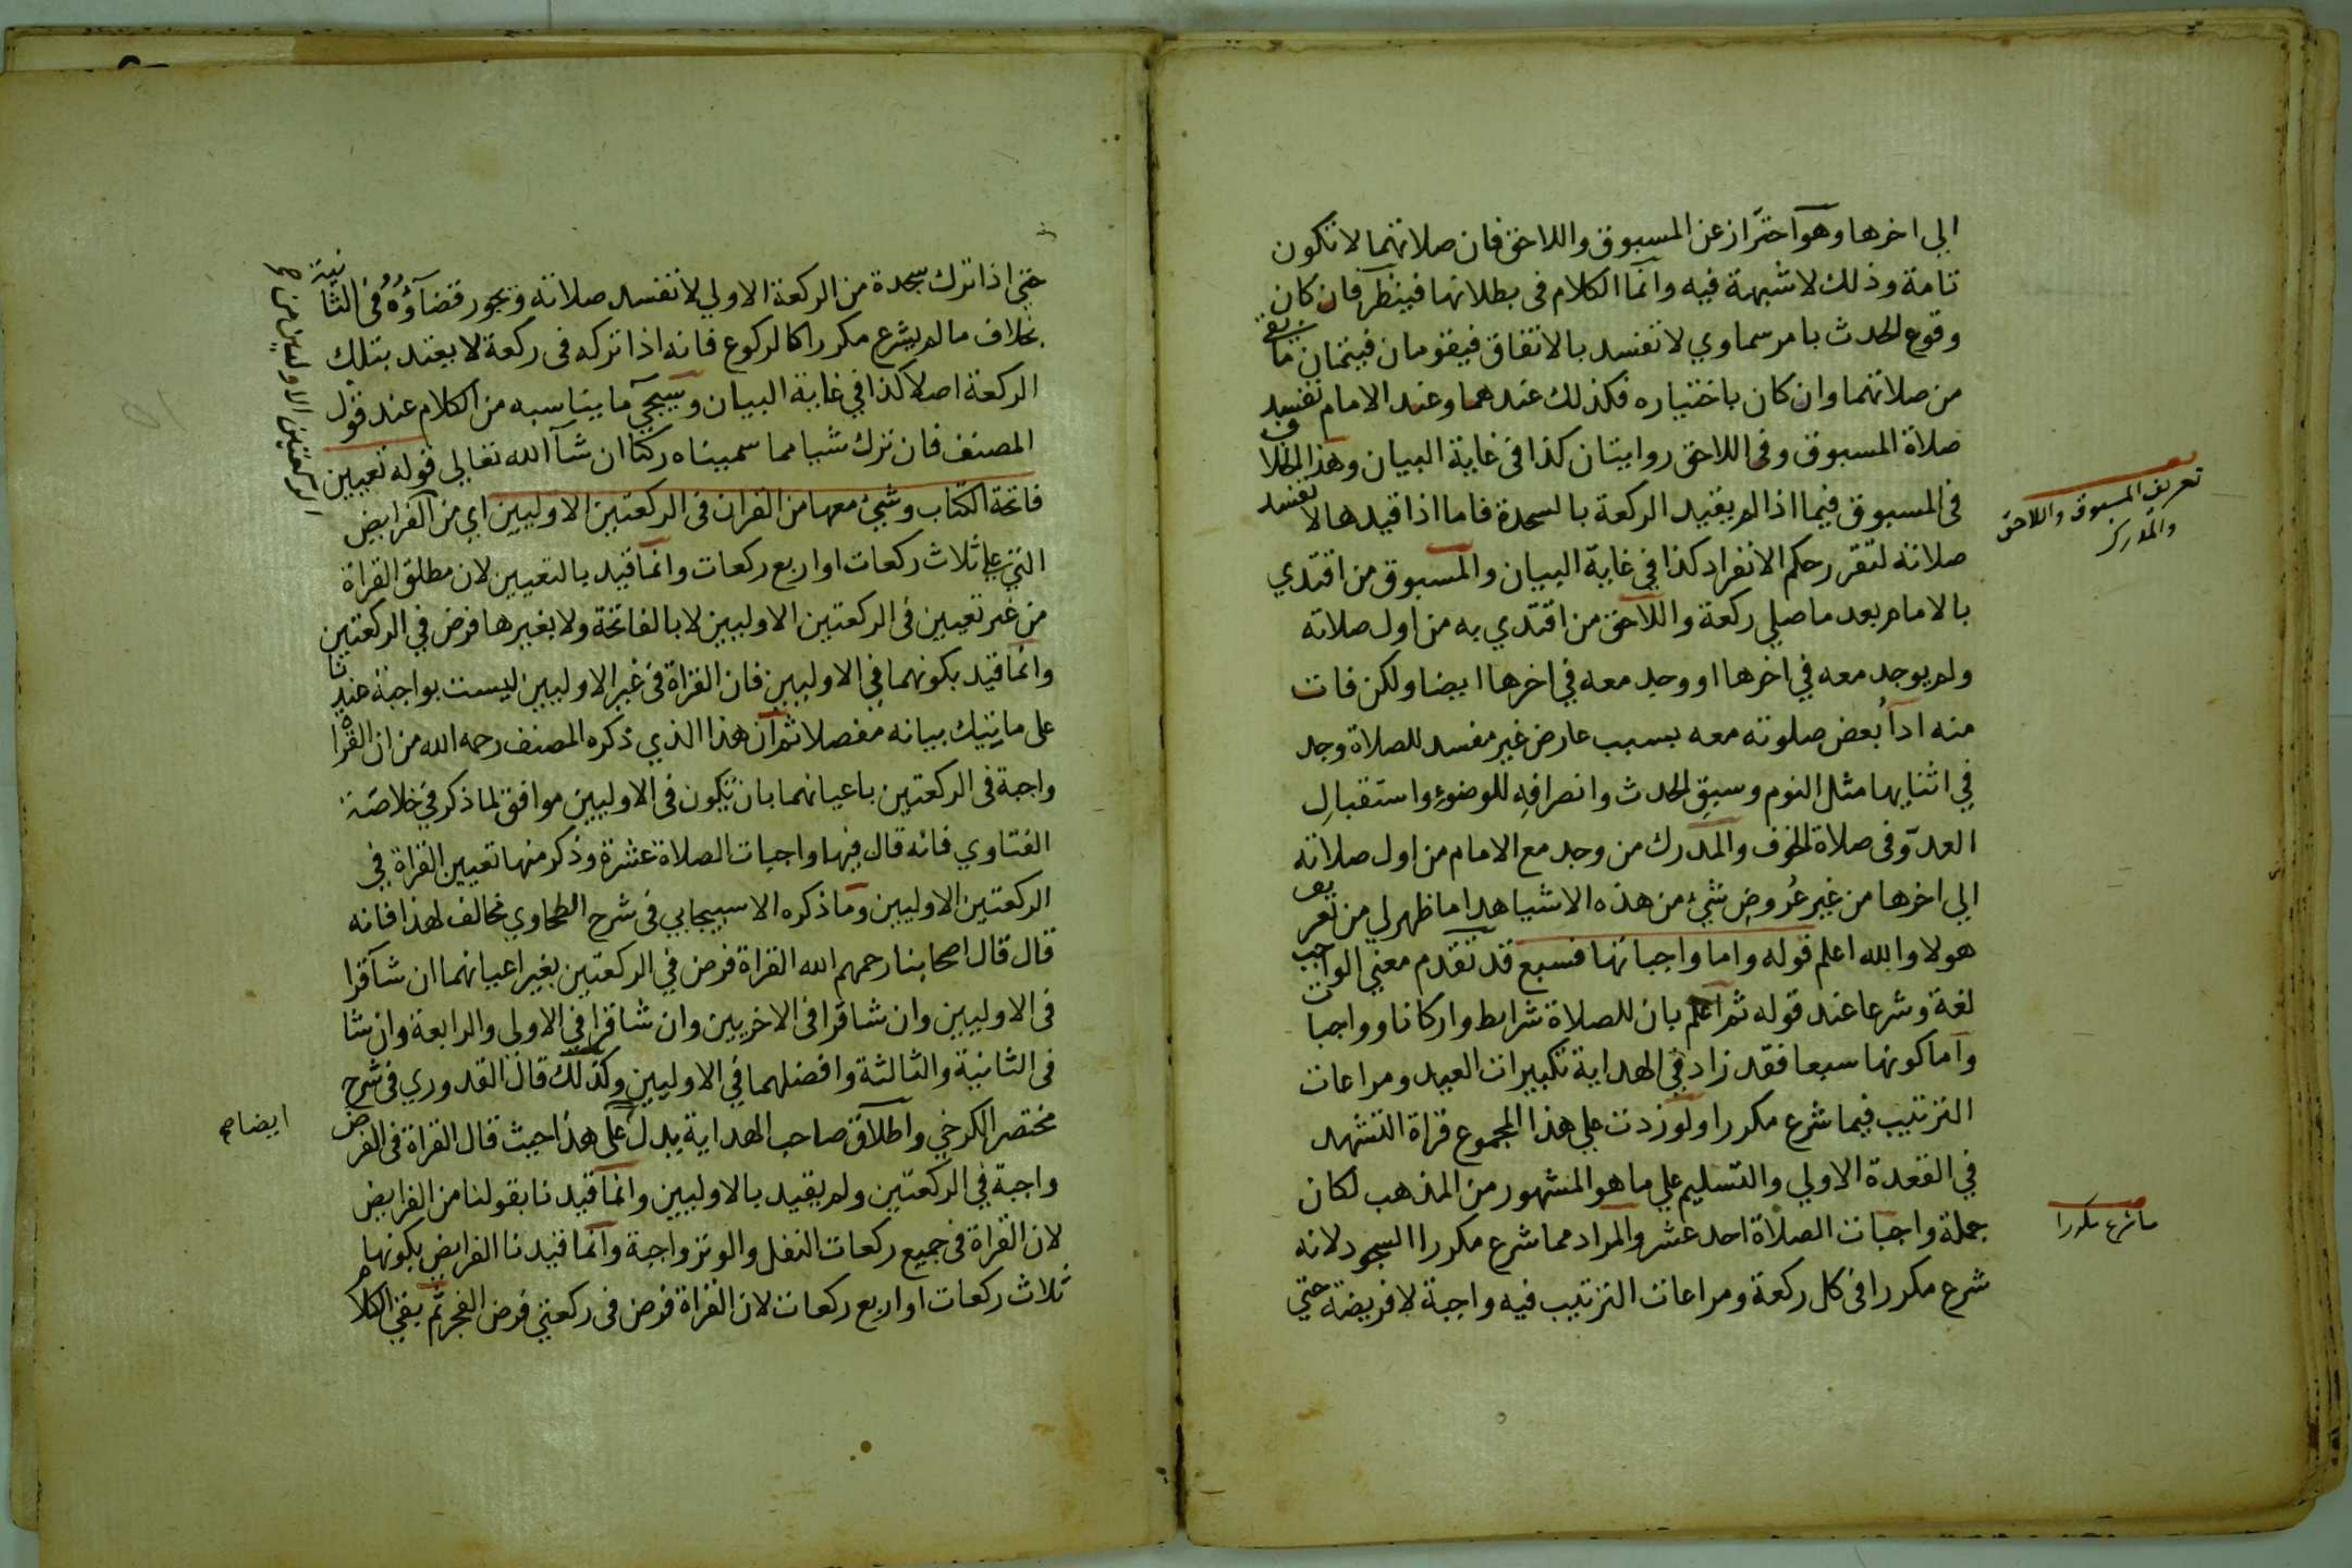 الي اخرها وهو احتراز عن المسبوق واللاحق فان صلاتهما لا تكون
تامة وذلك لا شبهة فيه وانما الكلام فى بطلانها فينظر فان كان
وقوع الحدث بامر سماوي لا تفسد بالاتفاق فيقومان فيتمان ما بقي
من صلاتهما وان كان باختياره فكذلك عندهما وعند الامام تفسد
صلاة المسبوق وفى اللاحق روايتان كذا فى غاية البيان وهذا الخلاف
فى المسبوق فيما اذا لم يقيد الركعة بالسجدة فاما اذا قيدها لا تفسد
صلاته لتقرر حكم الانفراد كذا في غاية البيان والمسبوق من اقتدي
بالامام بعد ما صلي ركعة واللاحق من اقتدي به من اول صلاته
ولم يوجد معه في اخرها او وجد معه في اخرها ايضا ولكن فات
منه ادآء بعض صلوته معه بسبب عارض غير مفسد للصلاة وجد
في اثنايها مثل النوم وسبق الحدث وانصرافه للوضوء واستقبال
العدو فى صلاة الخوف والمدرك من وجد مع الامام من اول صلاته
الي اخرها من غير عروض شيء من هذه الاشيا هذا ما ظهر لي من تعريف
هولا والله اعلم قوله واما واجباتها فسبع قد تقدم معني الواجب
لغة وشرعا عند قوله ثم اعلم بان للصلاة شرايط واركانا وواجبات
واما كونها سبعا فقد زاد في الهداية تكبيرات العيد ومراعات
الترتيب فيما شرع مكررا ولو زدت علي هذا المجموع قراة التشهد
في القعدة الاولي والتسليم علي ما هو المشهور من المذهب لكان
جملة واجبات الصلاة احد عشر والمراد مما شرع مكررا السجود لانه
شرع مكررا فى كل ركعة ومراعات الترتيب فيه واجبة لا فريضة حتي
تعريف المسبوق واللاحق
والمدرك
ما شرع مكررا
حتي اذا ترك سجدة من الركعة الاولي لا تفسد صلاته ويجوز قضآؤه فى الثانية
بخلاف ما لم يشرع مكررا كالركوع فانه اذا تركه فى ركعة لا يعتد بتلك
الركعة اصلا كذا في غاية البيان وسيجي ما يناسبه من الكلام عند قول
المصنف فان ترك شيا مما سميناه ركنا ان شآ الله تعالي قوله تعيين
فاتحة الكتاب وشيء معها من القران فى الركعتين الاوليين اي من الفرايض
التي علي ثلاث ركعات او اربع ركعات وانما قيد بالتعيين لان مطلق القراة
من غير تعيين فى الركعتين الاوليين لا بالفاتحة ولا بغيرها فرض في الركعتين
وانما قيد بكونهما في الاوليين فان القراة فى غير الاوليين ليست بواجبة عندنا
على ما يتيك بيانه مفصلا ثم ان هذا الذي ذكره المصنف رحمه الله من ان القراة
واجبة فى الركعتين باعيانهما بان تكون فى الاوليين موافق لما ذكر في خلاصة
الفتاوي فانه قال فيها واجبات الصلاة عشرة وذكر منها تعيين القراة في
الركعتين الاوليين وما ذكره الاسبيجابي فى شرح الطحاوي مخالف لهذا فانه
قال قال اصحابنا رحمهم الله القراة فرض في الركعتين بغير اعيانهما ان شآ قرا
فى الاوليين وان شا قرا فى الاخريين وان شا قرا في الاولى والرابعة وان شا
فى الثانية والثالثة وافضلهما في الاوليين وكذلك قال القدوري فى شرح
مختصر الكرخي واطلاق صاحب الهداية يدل على هذا حيث قال القراة فى الفرض
واجبة في الركعتين ولم يقيد بالاوليين وانما قيدنا بقولنا من الفرايض
لان القراة فى جميع ركعات النفل والوتر واجبة وانما قيدنا الفرايض بكونها
ثلاث ركعات او اربع ركعات لان القراة فرض فى ركعتي فرض الفجر ثم بقي الكلام
الركعتين الاوليين من صح
ايضا صح